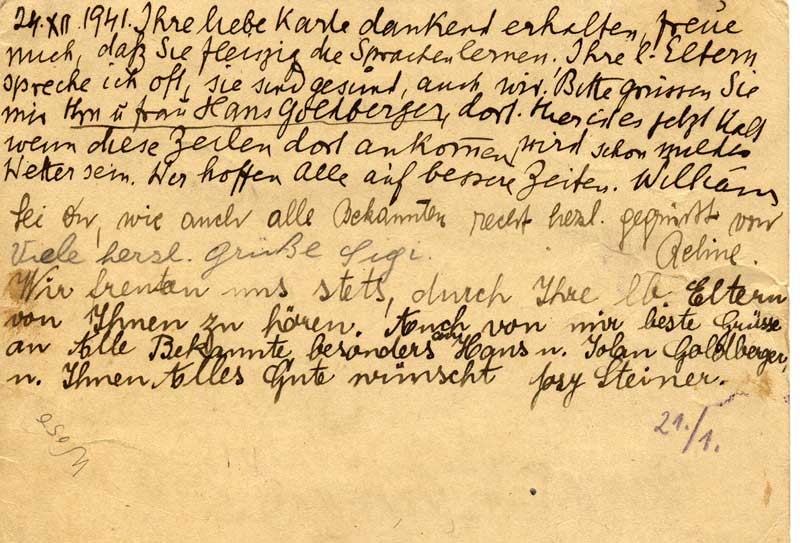 24. XII. 1941. Ihre liebe Karte dankend erhalten, freue
mich, daß Sie fleiszig die Sprachen lernen, Ihre l. Eltern
spreche ich oft, sie sind gesund, auch wir. Bitte grüssen Sie
mir Hrn u frau Hans Goldberger, dort. Hier ist es jetzt kalt
wenn diese Zeilen dort ankomen, wird schon mildes
Wetter sein. Wir hoffen Alle auf bessere Zeiten. William
Sei Du, wie auch alle Bekannten recht herzl. gegrüsst von
Viele herzl. Grüße Sigi.
Wir freuten uns stets, durch Ihre lb. Eltern
von Ihnen zu hören. Auch von mir beste Grüsse
an Alle Bekannte, besonders an Hans u. Jolan Goldberger,
u. Ihnen Alles Gute wünscht Steiner.
21./1.